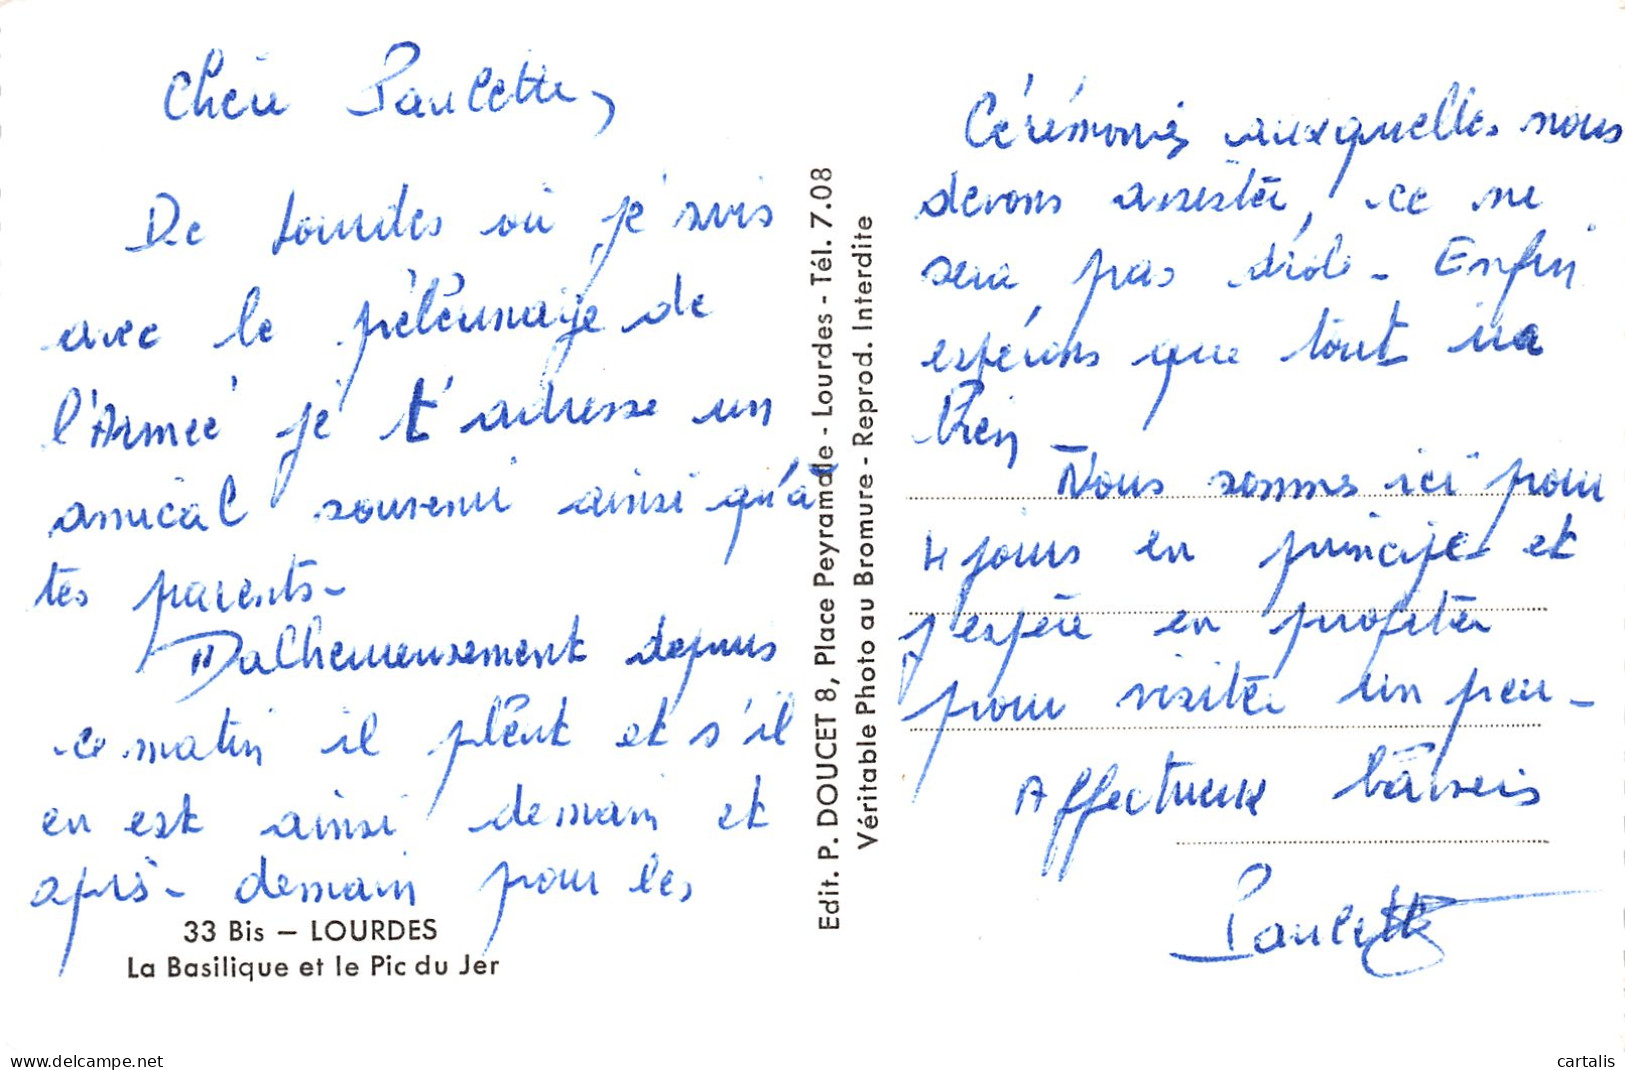 Chère Paulette,
De Lourdes où je suis
avec le pèlerinage de
l'Armée je t'adresse un
amical souvenir ainsi qu'à
tes parents -
Malheureusement depuis
ce matin il pleut et s'il
en est ainsi demain et
après-demain pour les
33 Bis — LOURDES
La Basilique et le Pic du Jer
Edit. P. DOUCET 8, Place Peyramale - Lourdes - Tél. 7.08
Véritable Photo au Bromure - Reprod. Interdite
Cérémonies auxquelles nous
devons assister, ce ne
sera pas drôle - Enfin
espérons que tout ira
bien -
Nous sommes ici pour
4 jours en principe et
j'espère en profiter
pour visiter un peu -
Affectueux baisers
Paulette
www.delcampe.net
cartalis